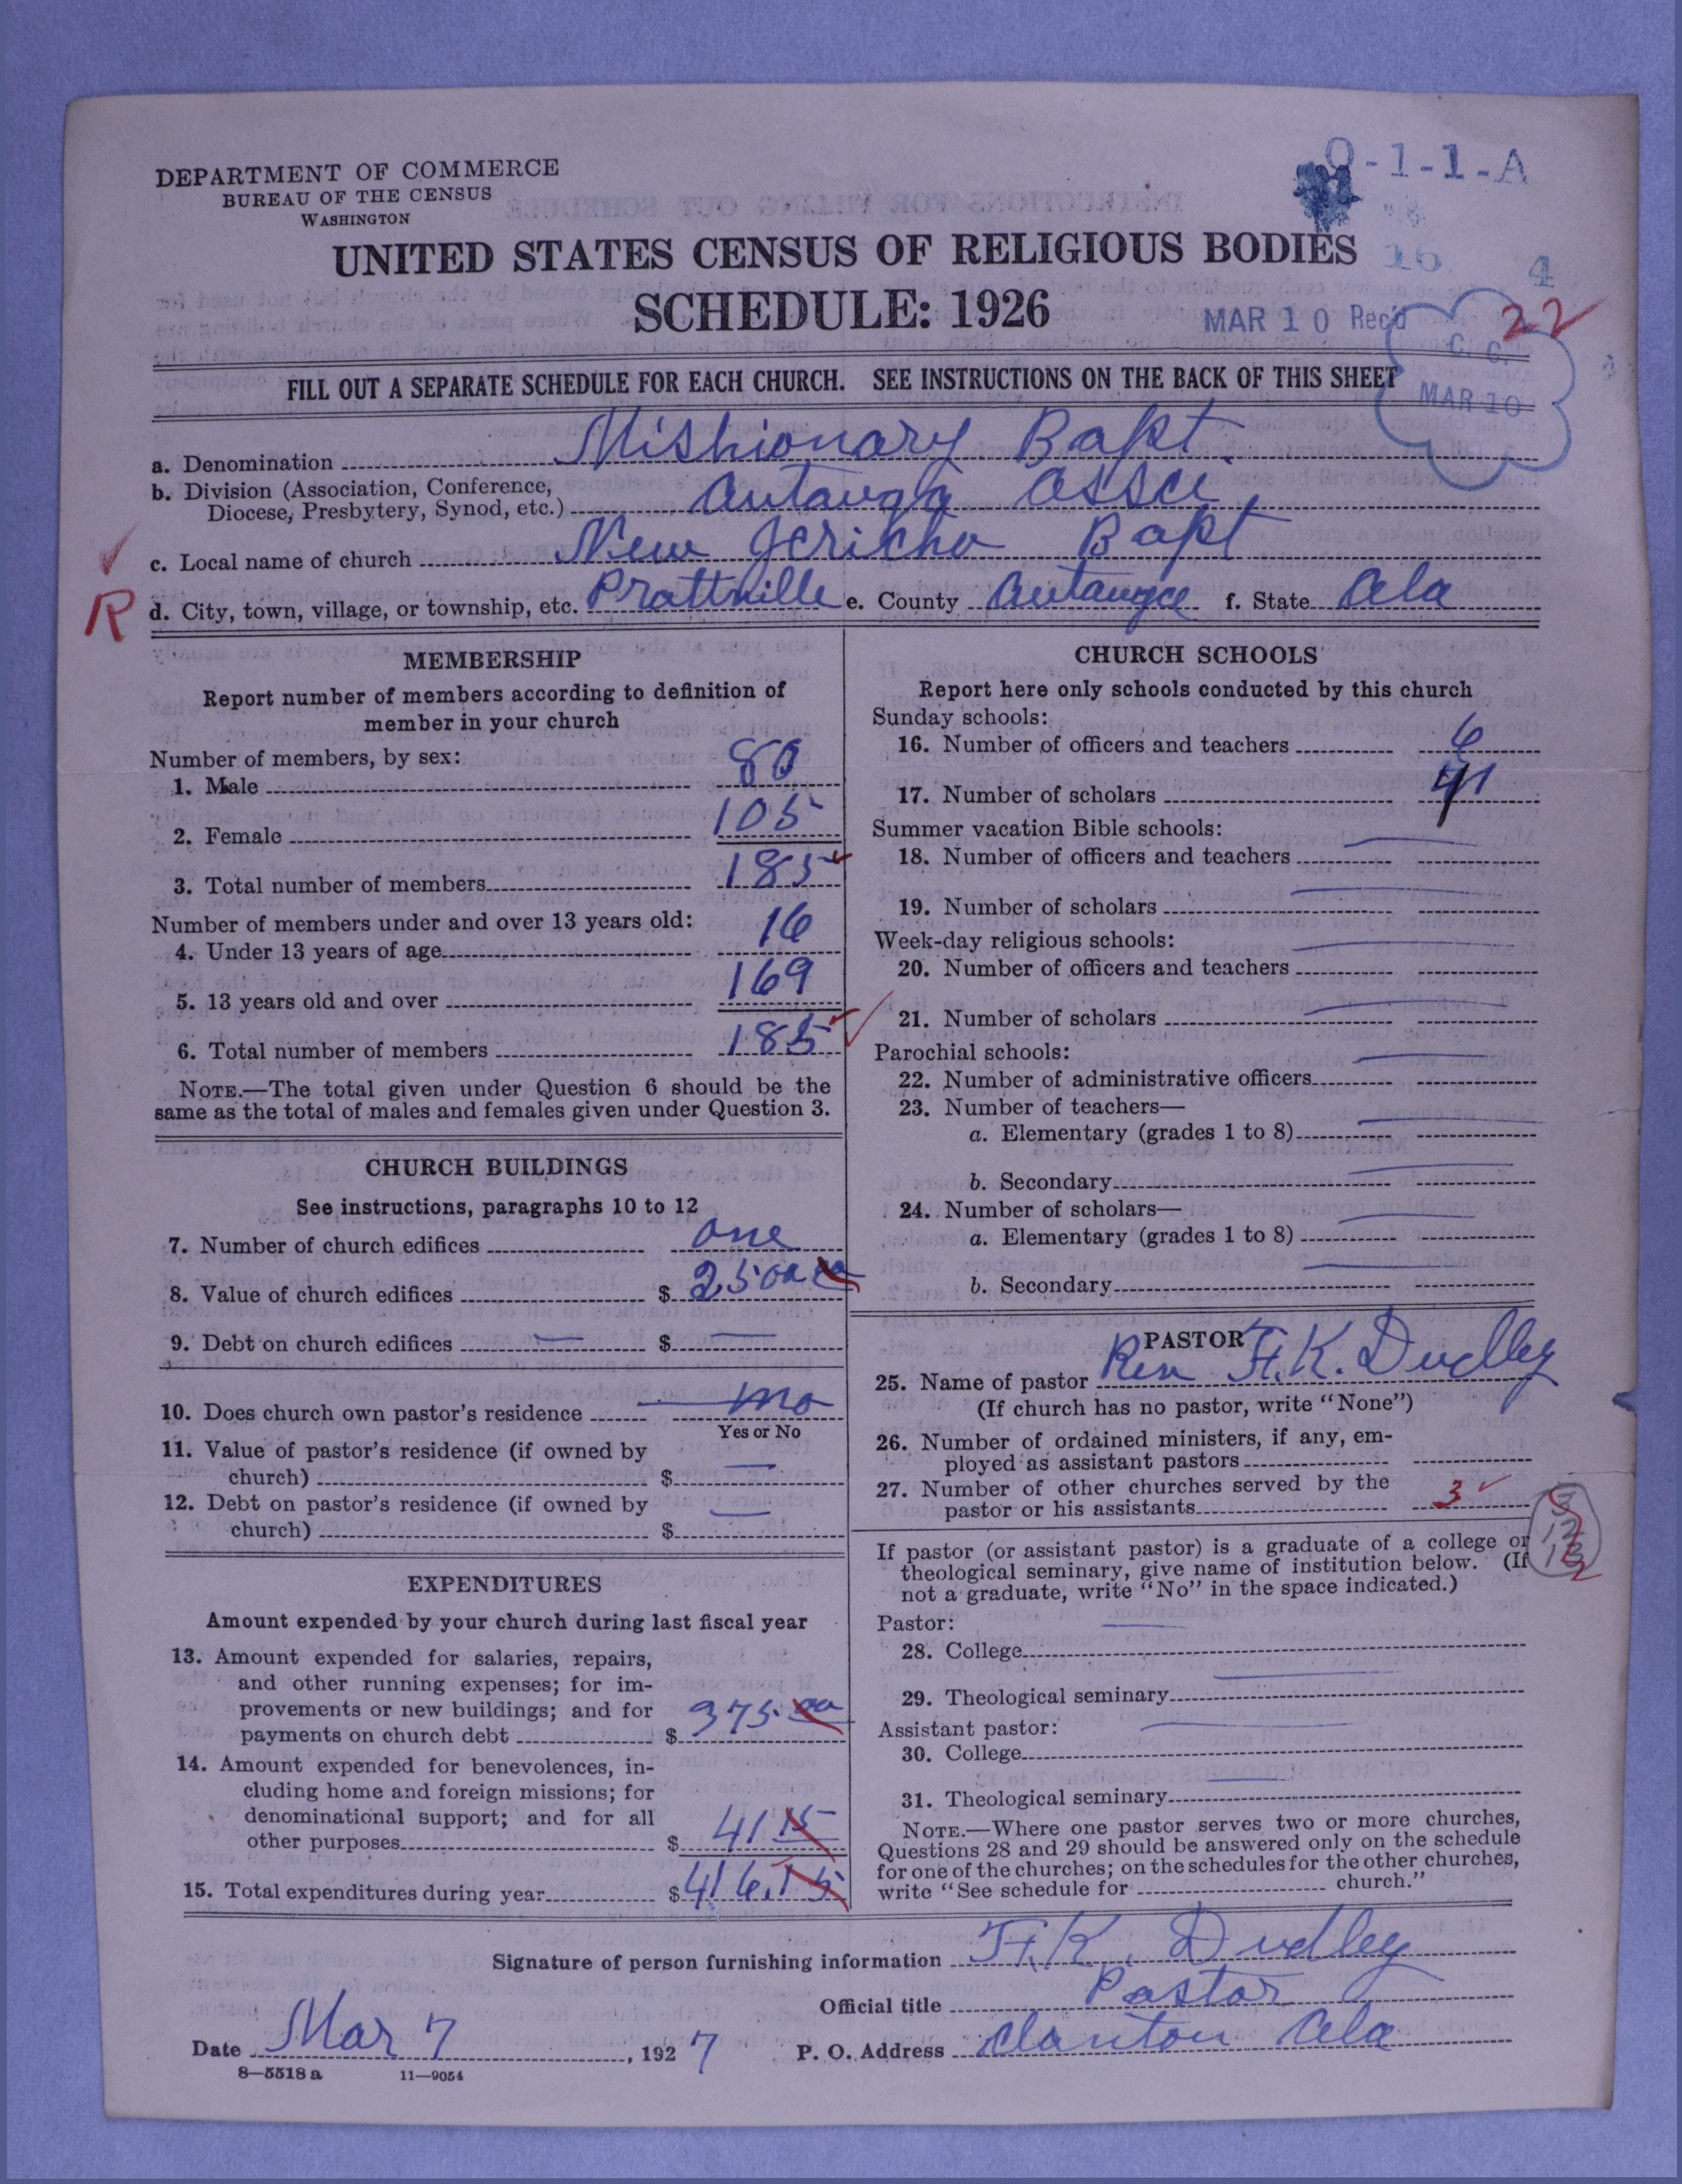 DEPARTMENT OF COMMERCE
BUREAU OF THE CENSUS
WASHINGTON
-1-1-A
UNITED STATES CENSUS OF RELIGIOUS BODIES
16 4
SCHEDULE: 1926
MAR 10 Rec'd
22
C. C.
MAR 10
FILL OUT A SEPARATE SCHEDULE FOR EACH CHURCH. SEE INSTRUCTIONS ON THE BACK OF THIS SHEET
a. Denomination Mishionary Bapt.
b. Division (Association, Conference,
Diocese, Presbytery, Synod, etc.) Autauga Assci.
c. Local name of church New Jericho Bapt
R
d. City, town, village, or township, etc. Prattville e. County Autauga f. State Ala
MEMBERSHIP
Report number of members according to definition of
member in your church
Number of members, by sex:
1. Male 80
2. Female 105
3. Total number of members 185
Number of members under and over 13 years old:
4. Under 13 years of age 16
5. 13 years old and over 169
6. Total number of members 185
NOTE.—The total given under Question 6 should be the
same as the total of males and females given under Question 3.
CHURCH BUILDINGS
See instructions, paragraphs 10 to 12
7. Number of church edifices one
8. Value of church edifices $ 2500 00
9. Debt on church edifices — $ —
10. Does church own pastor's residence no
Yes or No
11. Value of pastor's residence (if owned by
church) $ —
12. Debt on pastor's residence (if owned by
church) $ —
EXPENDITURES
Amount expended by your church during last fiscal year
13. Amount expended for salaries, repairs,
and other running expenses; for im-
provements or new buildings; and for
payments on church debt $ 375.00
14. Amount expended for benevolences, in-
cluding home and foreign missions; for
denominational support; and for all
other purposes $ 41 15
15. Total expenditures during year $ 416.15
CHURCH SCHOOLS
Report here only schools conducted by this church
Sunday schools:
16. Number of officers and teachers 6
17. Number of scholars 41
Summer vacation Bible schools:
18. Number of officers and teachers —
19. Number of scholars —
Week-day religious schools:
20. Number of officers and teachers —
21. Number of scholars —
Parochial schools:
22. Number of administrative officers —
23. Number of teachers—
a. Elementary (grades 1 to 8) —
b. Secondary —
24. Number of scholars—
a. Elementary (grades 1 to 8) —
b. Secondary —
PASTOR
25. Name of pastor Rev F. K. Dudley
(If church has no pastor, write "None")
26. Number of ordained ministers, if any, em-
ployed as assistant pastors
27. Number of other churches served by the
pastor or his assistants 3
If pastor (or assistant pastor) is a graduate of a college or
theological seminary, give name of institution below. (If
not a graduate, write "No" in the space indicated.)
Pastor:
28. College —
29. Theological seminary —
Assistant pastor:
30. College —
31. Theological seminary —
NOTE.—Where one pastor serves two or more churches,
Questions 28 and 29 should be answered only on the schedule
for one of the churches; on the schedules for the other churches,
write "See schedule for church."
Signature of person furnishing information F. K. Dudley
Official title Pastor
Date Mar 7, 1927 P. O. Address Clanton Ala
8—5518 a 11—9054